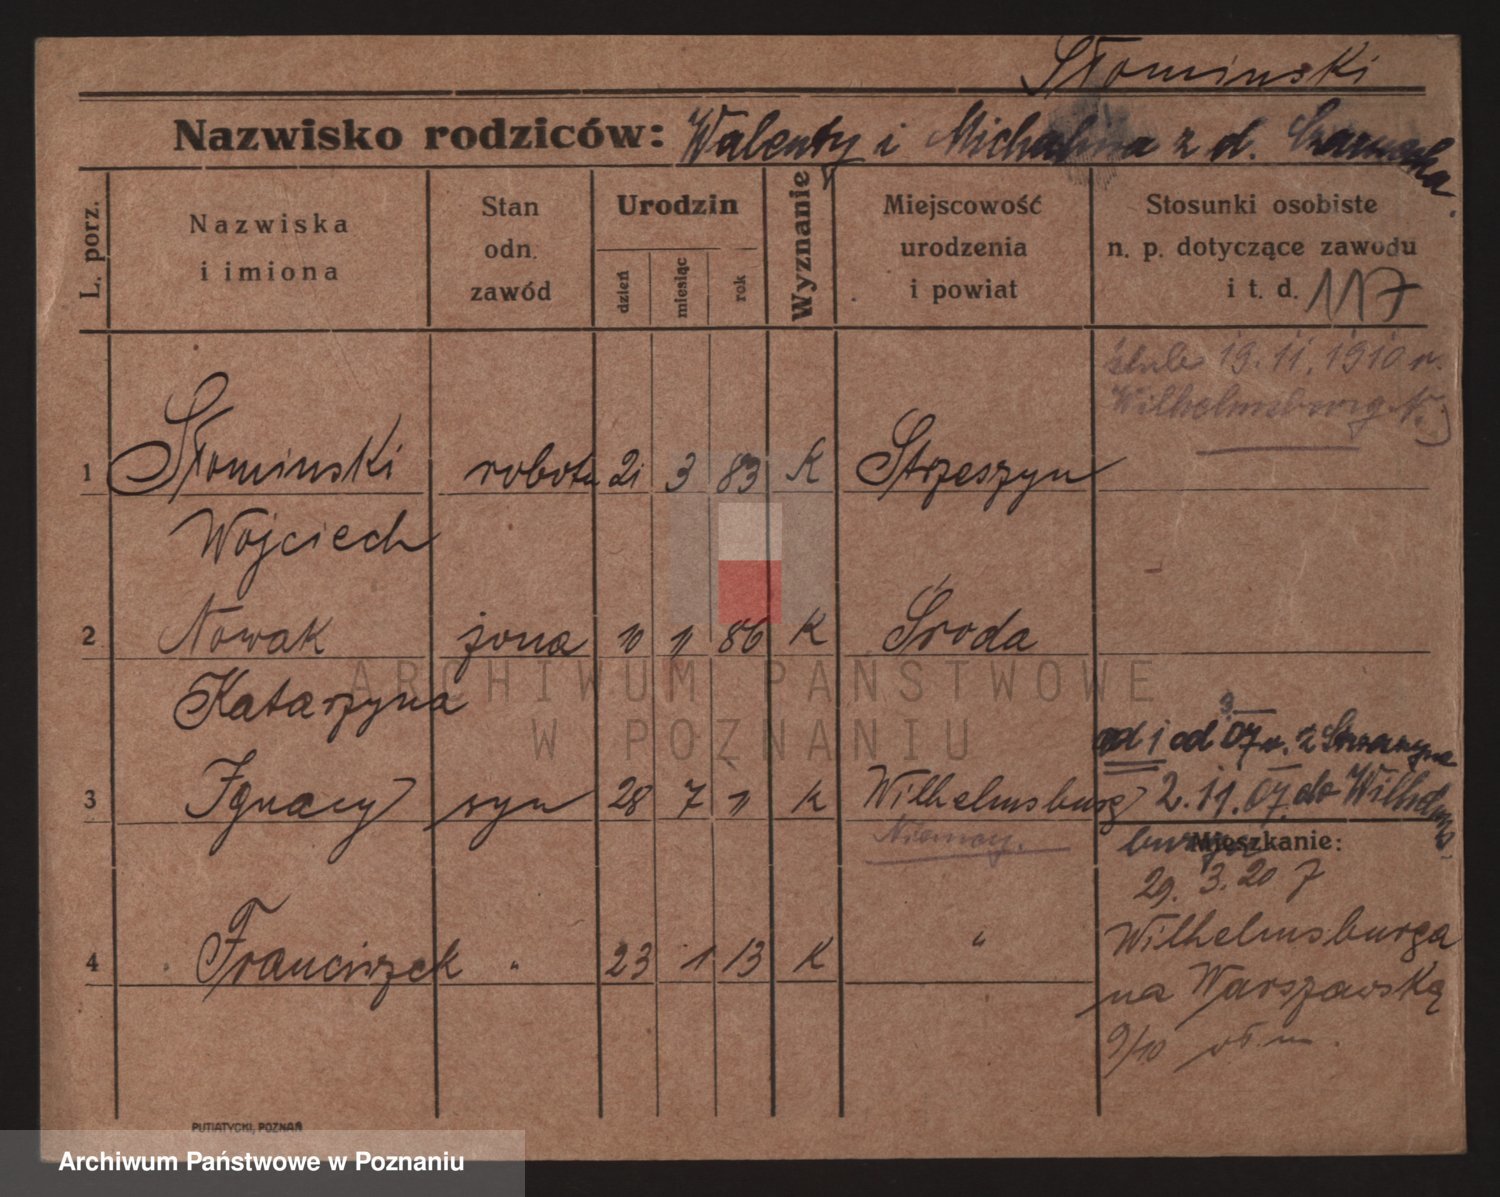 Słominski
Nazwisko rodziców: Walenty i Michalina z d.
L. porz.
Nazwiska
i imiona
Stan
odn.
zawód
Urodzin
dzień
miesiąc
rok
Wyznanie
Miejscowość
urodzenia
i powiat
Stosunki osobiste
n. p. dotyczące zawodu
i t. d. 117
ślub 19. 11. 1910 r.
Wilhelmsburg N.
1 Słominski robotn 21 3 83 K Strzeszyn
Wojciech
2 Nowak żona 10 11 86 K Środa
Katarzyna
od 1 od 07 r. z
3 Ignacy syn 28 7 11 K Wilhelmsburg 2. 11. 07. do Wilhelms
Niemcy. burga
Mieszkanie:
29. 3. 20 z
Wilhelmsburga
4 Franciszek " 23 1 13 K "
na Warszawską
9/10
PUTIATYCKI, POZNAŃ
ARCHIWUM PAŃSTWOWE
W POZNANIU
Archiwum Państwowe w Poznaniu